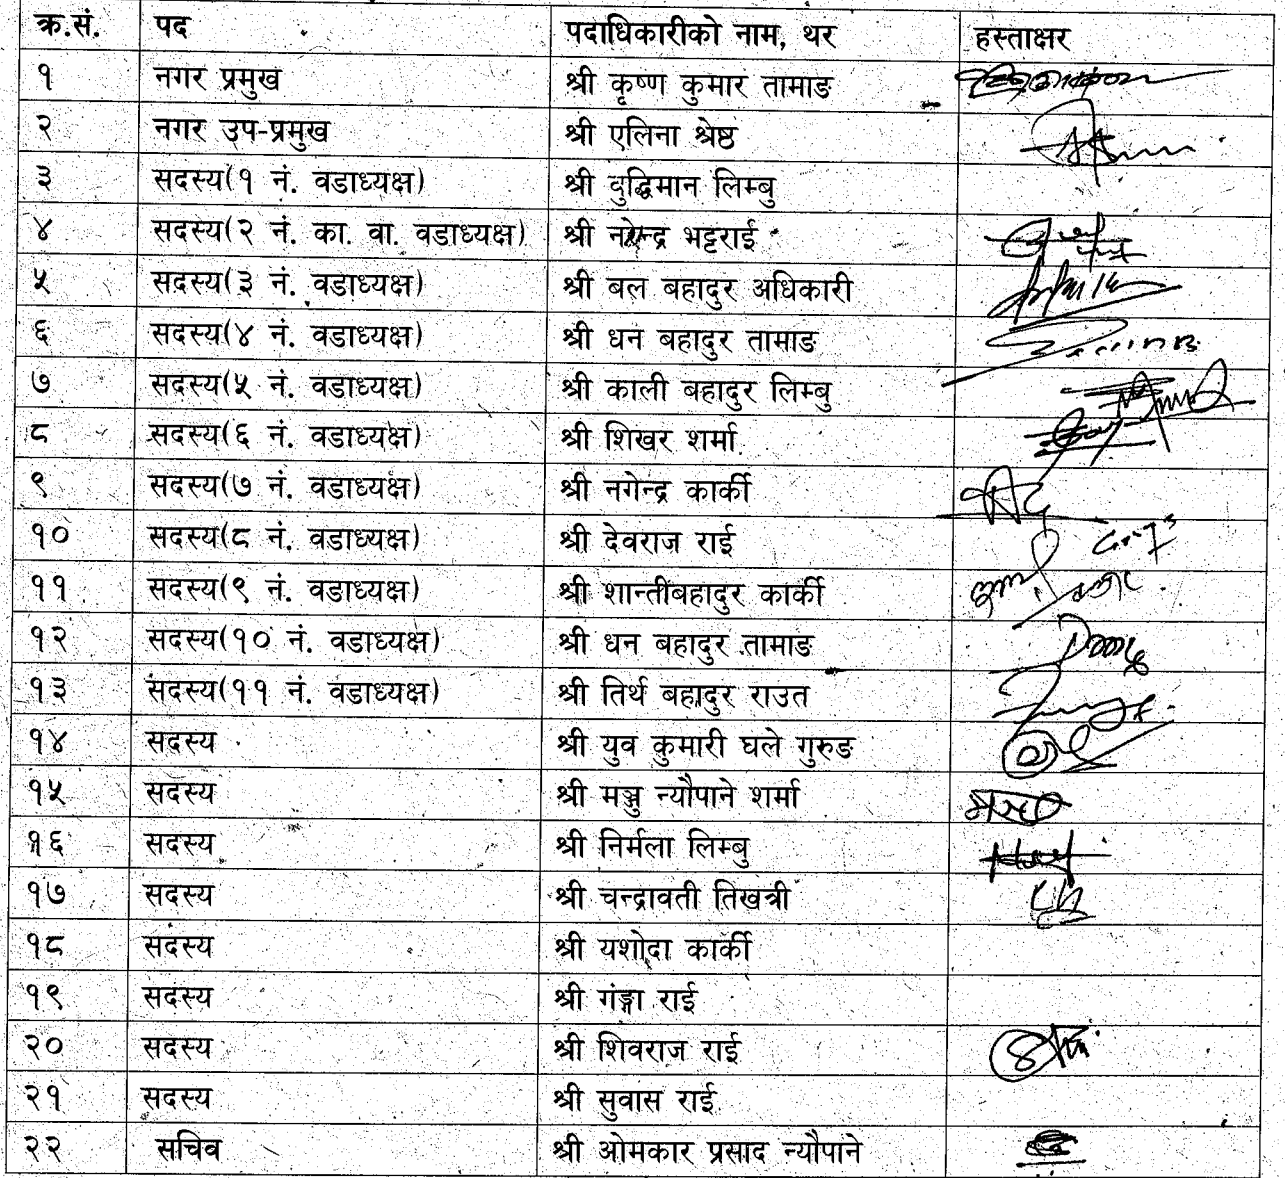 क्र.सं. पद पदाधिकारीको नाम, थर हस्ताक्षर
१ नगर प्रमुख श्री कृष्ण कुमार तामाङ
२ नगर उप-प्रमुख श्री एलिना श्रेष्ठ
३ सदस्य(१ नं. वडाध्यक्ष) श्री दुद्धिमान लिम्बु
४ सदस्य(२ नं. का. वा. वडाध्यक्ष) श्री नरेन्द्र भट्टराई
५ सदस्य(३ नं. वडाध्यक्ष) श्री बल बहादुर अधिकारी
६ सदस्य(४ नं. वडाध्यक्ष) श्री धन बहादुर तामाङ
७ सदस्य(५ नं. वडाध्यक्ष) श्री काली बहादुर लिम्बु
८ सदस्य(६ नं. वडाध्यक्ष) श्री शिखर शर्मा
९ सदस्य(७ नं. वडाध्यक्ष) श्री नगेन्द्र कार्की
१० सदस्य(८ नं. वडाध्यक्ष) श्री देवराज राई
११ सदस्य(९ नं. वडाध्यक्ष) श्री शान्तीबहादुर कार्की
१२ सदस्य(१० नं. वडाध्यक्ष) श्री धन बहादुर तामाङ
१३ सदस्य(११ नं. वडाध्यक्ष) श्री तिर्थ बहादुर राउत
१४ सदस्य श्री युव कुमारी घले गुरुङ
१५ सदस्य श्री मञ्जु न्यौपाने शर्मा
१६ सदस्य श्री निर्मला लिम्बु
१७ सदस्य श्री चन्द्रावती तिखत्री
१८ सदस्य श्री यशोदा कार्की
१९ सदस्य श्री गंङ्गा राई
२० सदस्य श्री शिवराज राई
२१ सदस्य श्री सुवास राई
२२ सचिव श्री ओमकार प्रसाद न्यौपाने